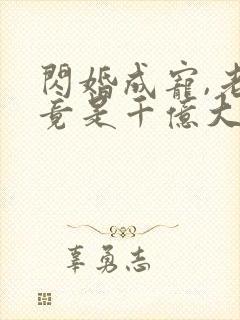 閃婚成寵,老
竟是千億大
辜勇志